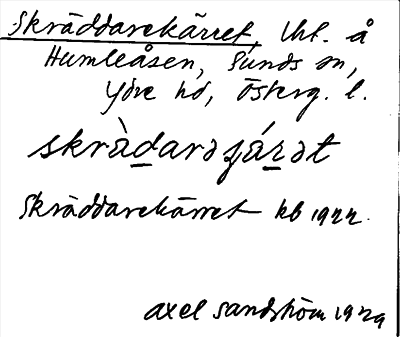 Skräddarekärret, lht. å
Humleåsen, Sunds sn,
Ydre hd, Österg. l.
skràdarəʃárət
Skräddarekärret kb 1922.
axel sandström 1929